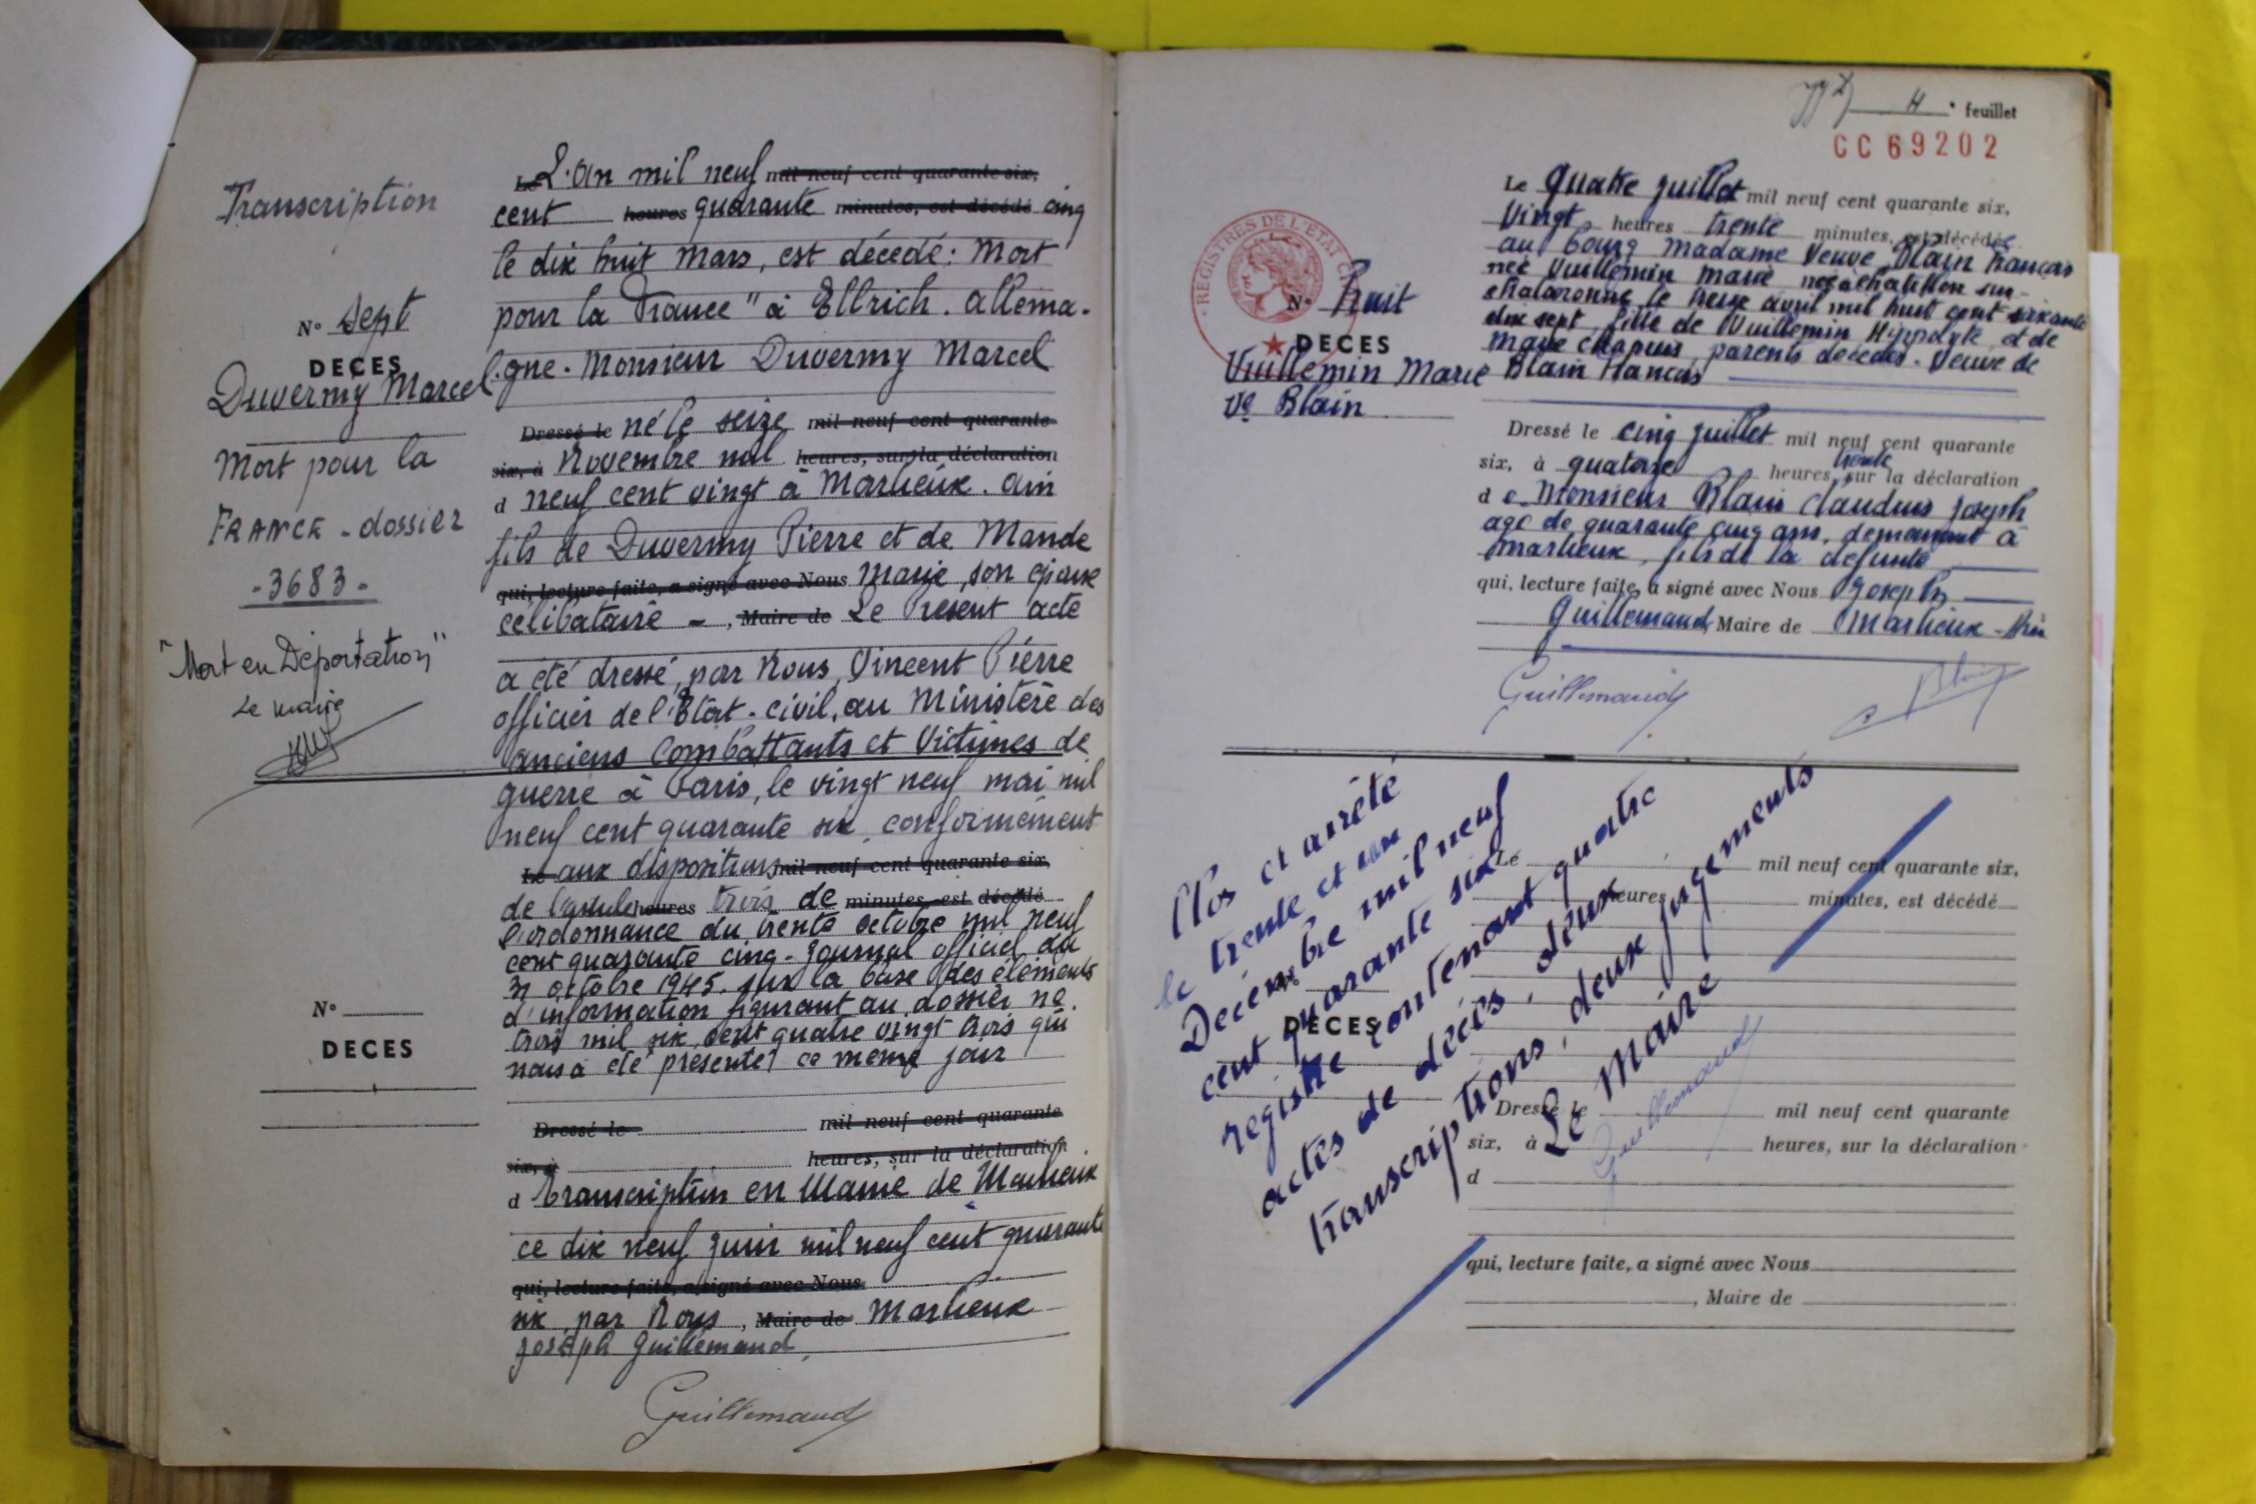 Transcription
N° Sept
DECES
Duvermy Marcel
Mort pour la
FRANCE - dossier
- 3683 -
"Mort en Déportation"
Le maire
Le L'an mil neuf mil neuf cent quarante six,
cent heures quarante minutes, est décédé cinq
le dix huit Mars, est décédé: Mort
pour la France" à Ellrich. Allema-
gne. Monsieur Duvermy Marcel
Dressé le né le seize mil neuf cent quarante
six, à Novembre mil heures, sur la déclaration
d neuf cent vingt à Marlieux. Ain
fils de Duvermy Pierre et de Mande
qui, lecture faite, a signé avec Nous Marie, son épouse
célibataire - , Maire de Le Présent acte
a été dressé, par Nous, Vincent Pierre
officier de l'Etat-civil, au Ministère des
anciens Combattants et Victimes de
guerre à Paris, le vingt neuf mai mil
neuf cent quarante six, conformément
Le aux dispositions mil neuf cent quarante six,
de l'article heures trois de minutes, est décédé
l'ordonnance du trente octobre mil neuf
cent quarante cinq - Journal officiel du
31 octobre 1945. sur la base des éléments
d'information figurant au dossier no.
trois mil six cent quatre vingt trois qui
nous a été présenté ce même jour
N°
DECES
Dressé le mil neuf cent quarante
six, à heures, sur la déclaration
d Transcription en Mairie de Marlieux
ce dix neuf Juin mil neuf cent quarante
qui, lecture faite, a signé avec Nous
six, par Nous , Maire de Marlieux
Joseph Guillemaud
Guillemaud
4 ° feuillet
CC 69202
REGISTRES DE L'ETAT CI
N° huit
DECES
Vuillemin Marie
Ve Blain
Le quatre Juillet mil neuf cent quarante six,
Vingt heures trente minutes, est décédée
au bourg Madame Veuve Blain Francois
née Vuillemin Marie née à Chatillon sur
Chalaronne le treize avril mil huit cent soixante
dix sept, fille de Vuillemin Hippolyte et de
Marie Chapuis, parents décédés. Veuve de
Blain Francois
Dressé le cinq Juillet mil neuf cent quarante
six, à quatorze heures trente sur la déclaration
d e Monsieur Blain Claudius Joseph
agé de quarante cinq ans, demeurant à
Marlieux, fils de la défunte
qui, lecture faite, a signé avec Nous Joseph
Guillemaud, Maire de Marlieux - Ain
Guillemaud
Blain
Clos et arrêté
le trente et un
Décembre mil neuf
cent quarante six
registre contenant quatre
actes de décès, deux
transcriptions, deux jugements
Le Maire
Guillemaud
N°
DECES
Le mil neuf cent quarante six,
heures minutes, est décédé
Dressé le mil neuf cent quarante
six, à heures, sur la déclaration
d
qui, lecture faite, a signé avec Nous
, Maire de